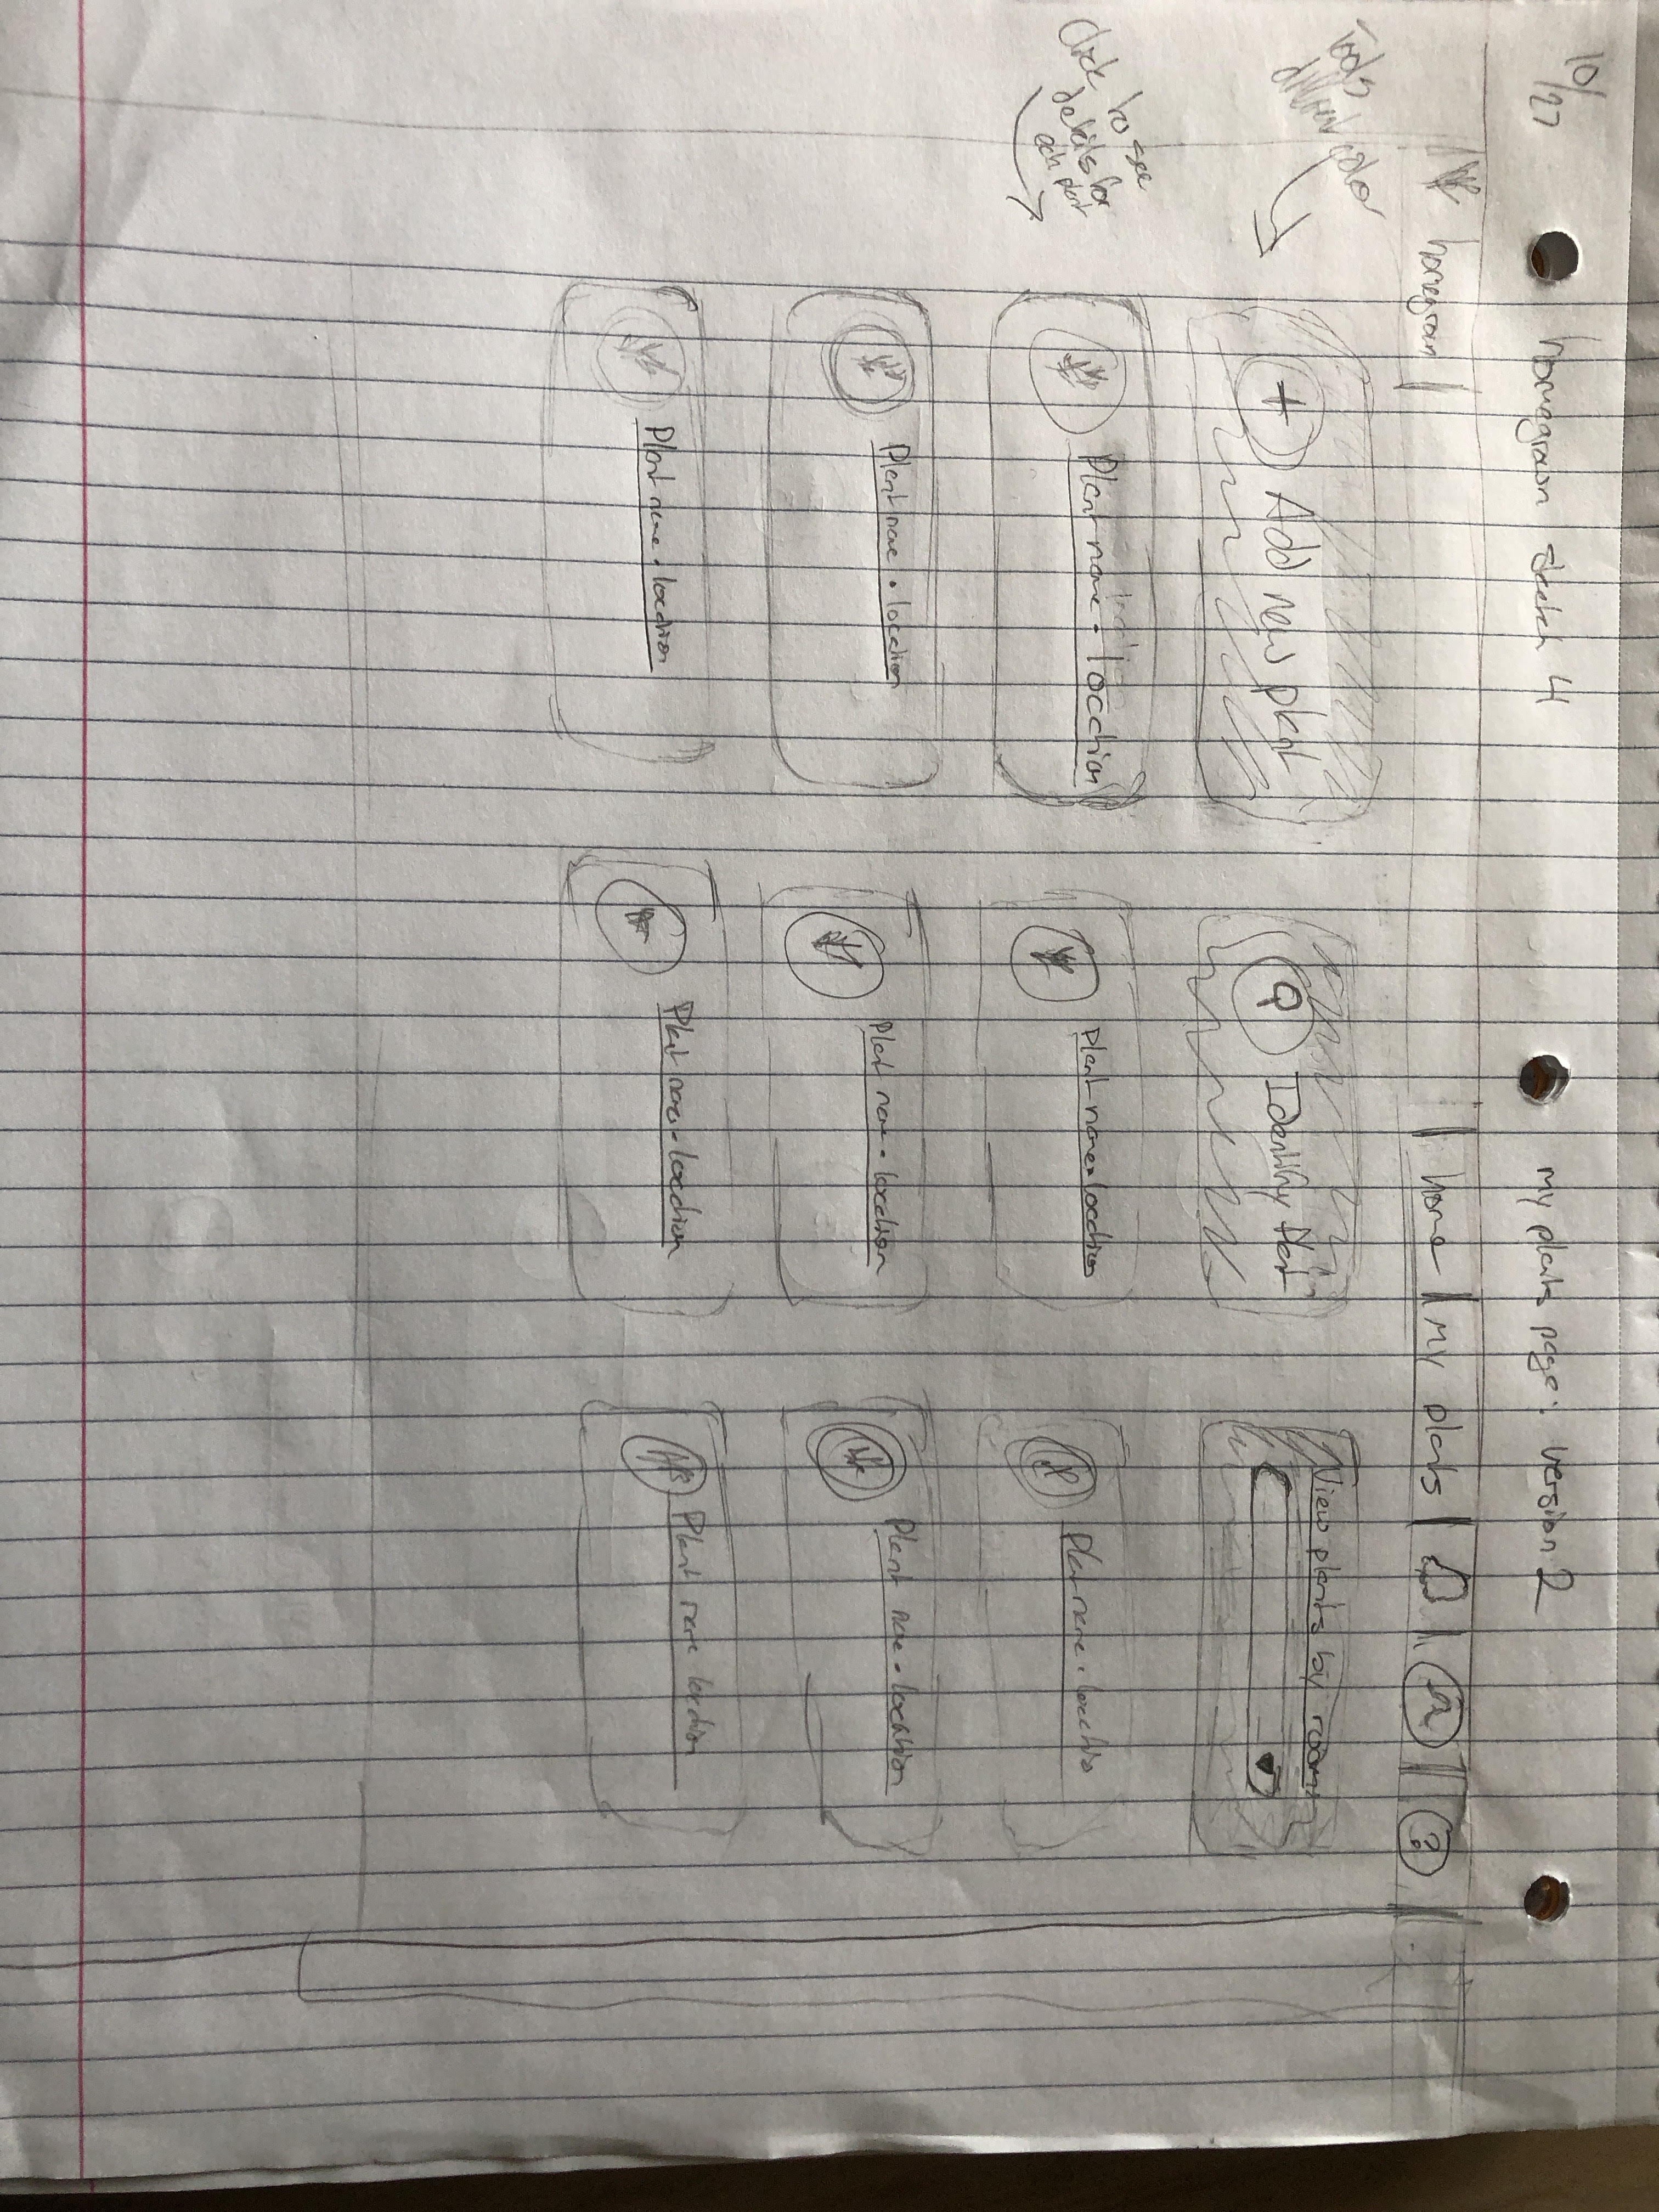 10/27
homegrown sketch 4
my plants page: version 2
homegrown
home
my plants
?
Tools different color
+ Add new plant
Identify plant
View plants by room:
Click to see
details for
each plant
Plant name · location
Plant name · location
Plant name · location
Plant name · location
Plant name · location
Plant name · location
Plant name · location
Plant name · location
Plant name location